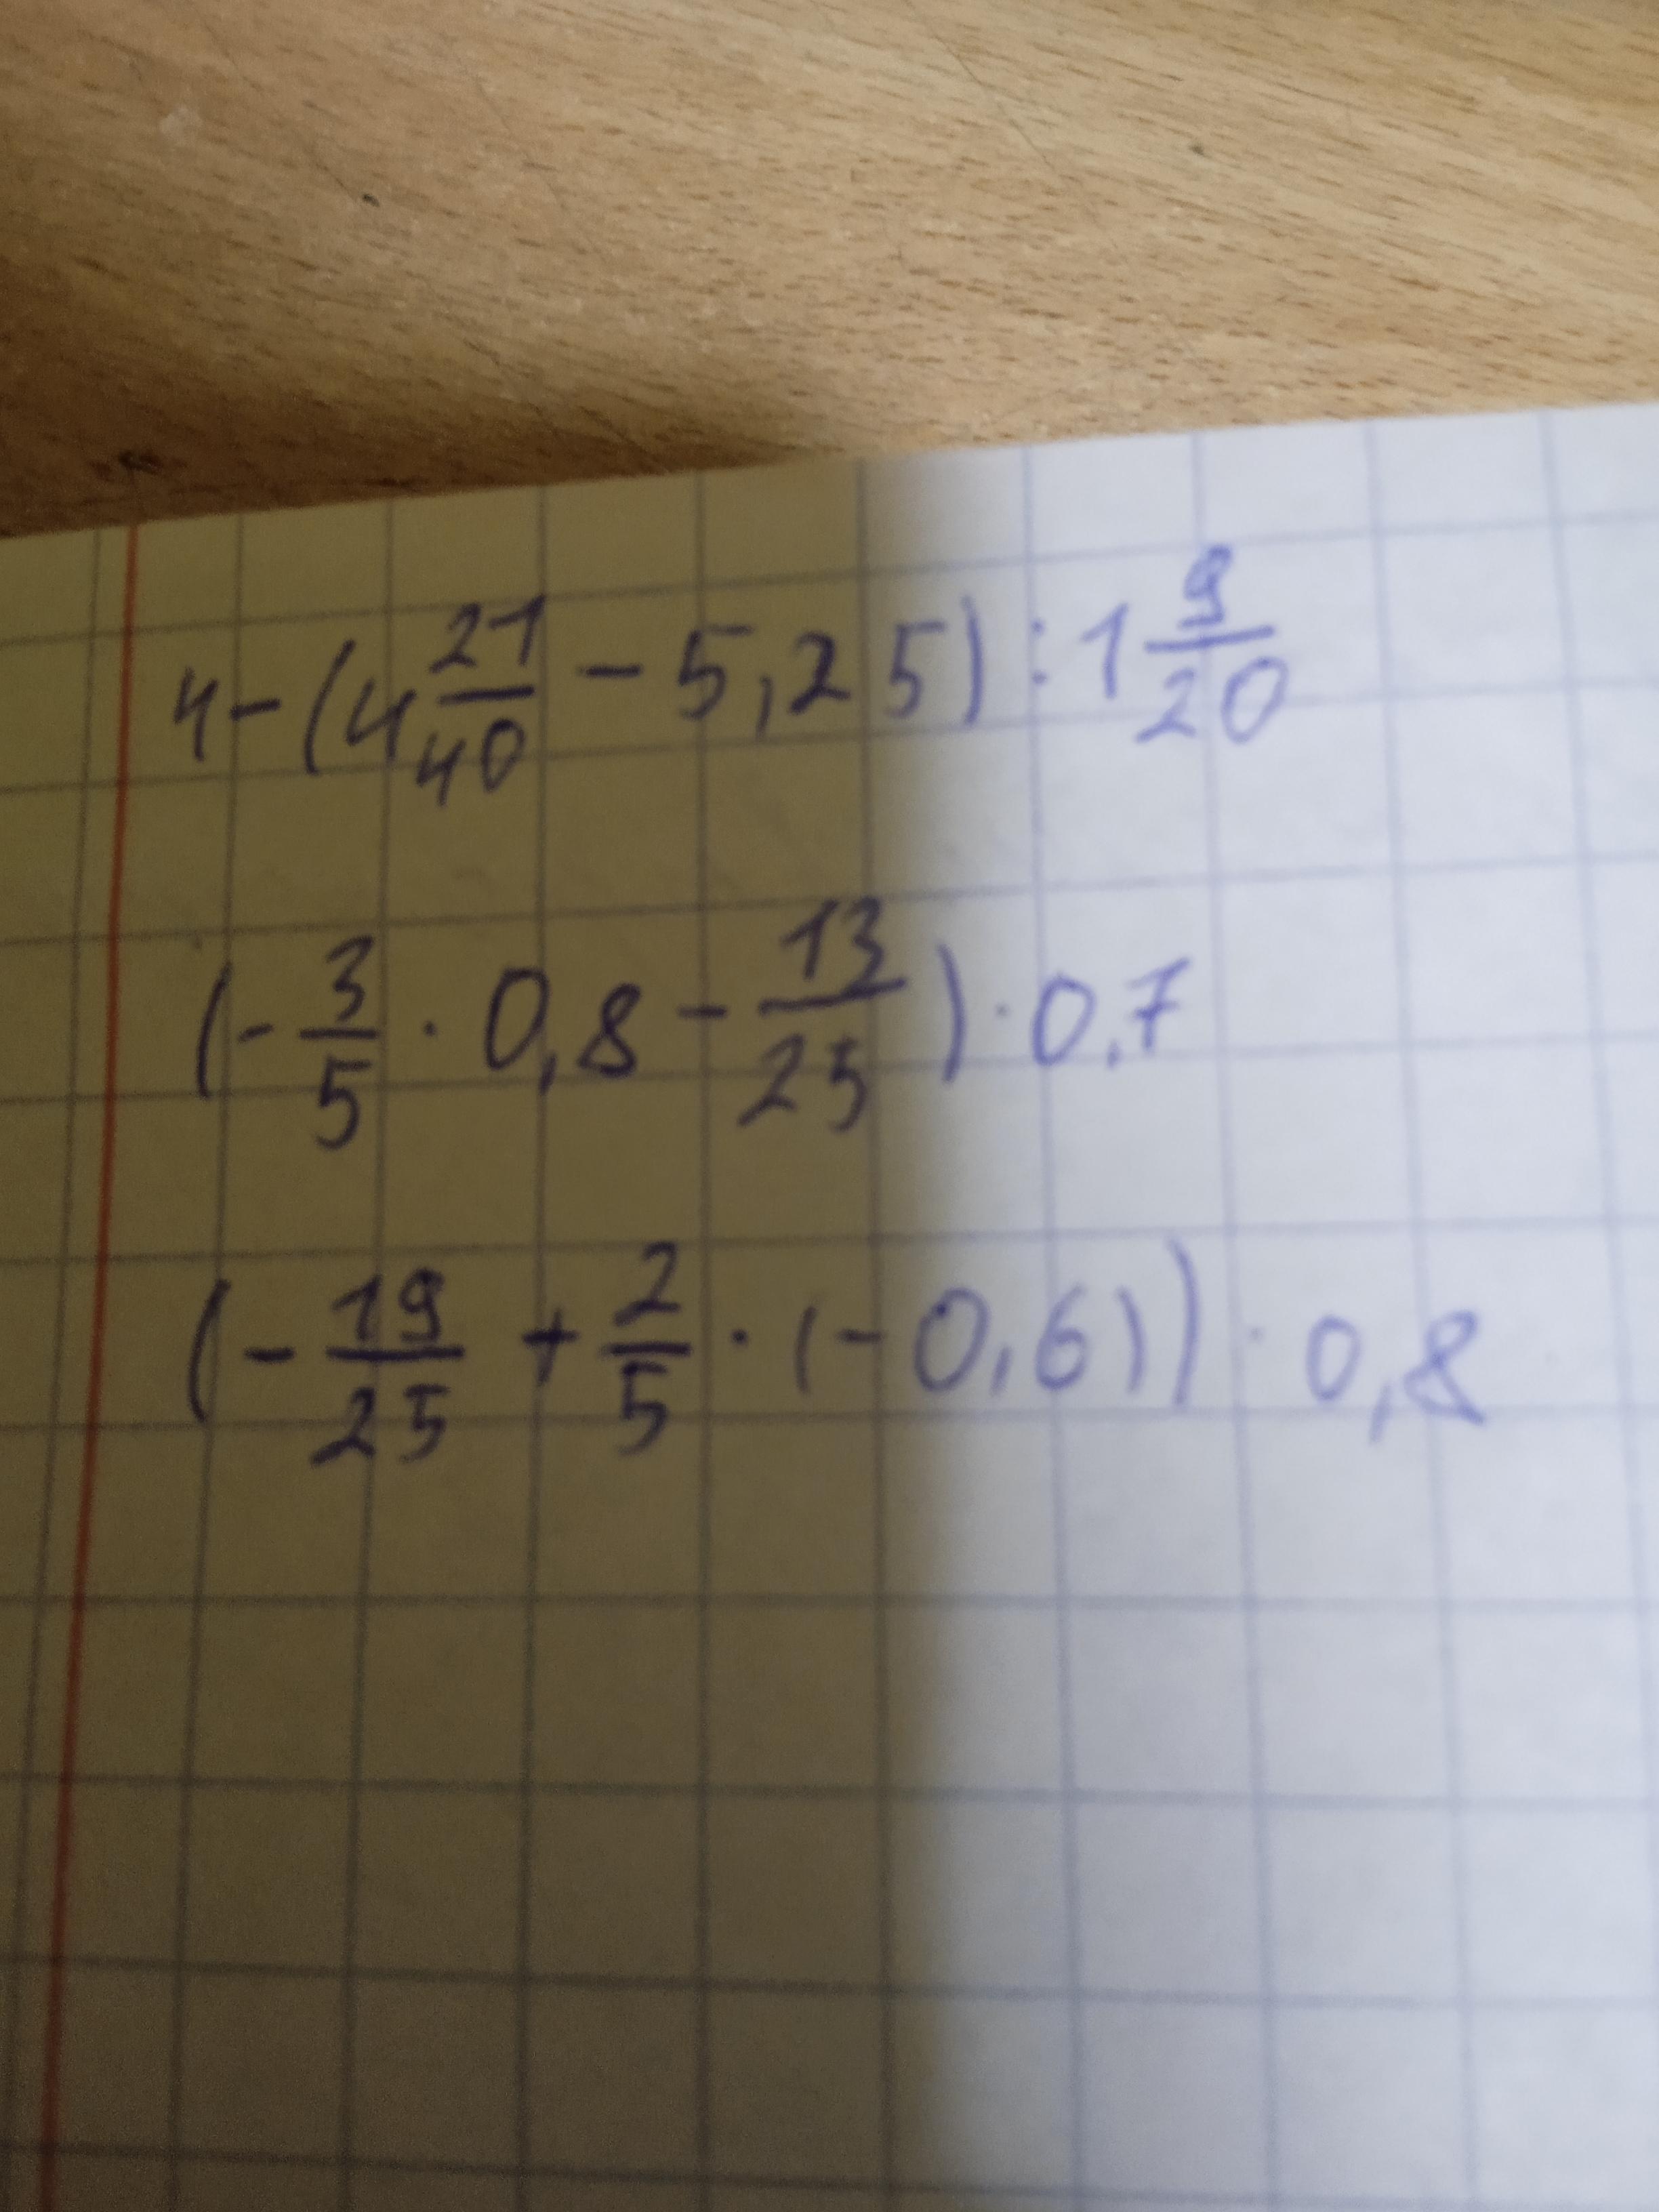 4-(4 21/40 - 5,25) : 1 9/20
(- 3/5 · 0,8 - 13/25) · 0,7
(- 19/25 + 2/5 · (-0,6)) · 0,8